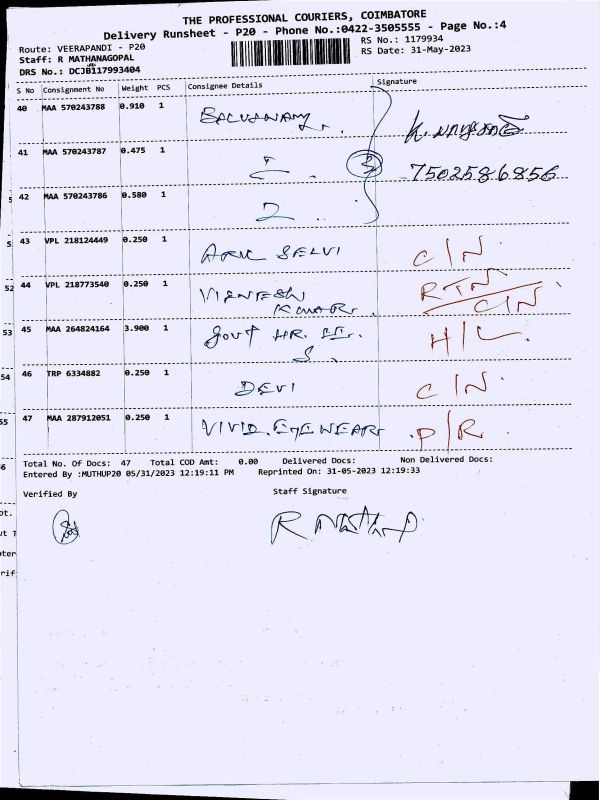 THE PROFESSIONAL COURIERS, COIMBATORE
Delivery Runsheet - P20 - Phone No.:0422-3505555 - Page No.:4
Route: VEERAPANDI - P20
RS No.: 1179934
Staff: R MATHANAGOPAL
RS Date: 31-May-2023
DRS No.: DCJB117993404
S No Consignment No Weight PCS Consignee Details Signature
40 MAA 570243788 0.910 1
41 MAA 570243787 0.475 1 3 7502586856
42 MAA 570243786 0.580 1
5 43 VPL 218124449 0.250 1 ARUL SELVI C/N.
52 44 VPL 218773540 0.250 1 VIGNESH RTN
KUMAR. C/N.
53 45 MAA 264824164 3.900 1 GOVT HR. H/L.
S.
54 46 TRP 6334882 0.250 1 DEVI C/N.
55 47 MAA 287912051 0.250 1 VIVID EYEWEAR P/R.
6 Total No. Of Docs: 47 Total COD Amt: 0.00 Delivered Docs: Non Delivered Docs:
Entered By :MUTHUP20 05/31/2023 12:19:11 PM Reprinted On: 31-05-2023 12:19:33
Verified By Staff Signature